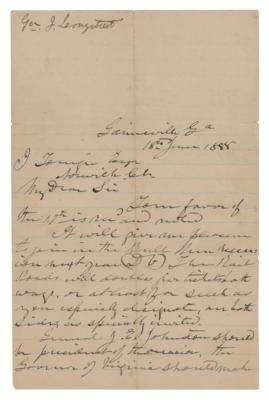 Gen. J. Longstreet
Gainesville Ga
18th June 1888
Norwich Ct
My Dear Sir
Your favor of
the is and noted
It will give me pleasure
to join in the Bull Run
next year The Rail
Roads will give tickets both
ways, or at least for such as
you especially designate, on both
sides as specially invited.
General J. E. Johnston should
be president of the the
Governor of Virginia should